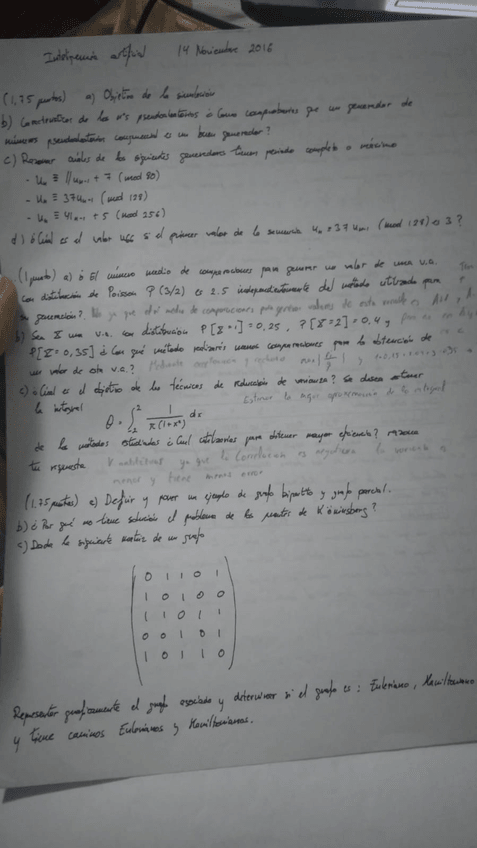 Inteligencia artificial 14 Noviembre 2016
(1,75 puntos) a) Objetivo de la simulación
b) Características de los nºs pseudoaleatorios ¿Como comprobarías que un generador de
números pseudoaleatorios congruencial es un buen generador?
c) Razonar cuáles de los siguientes generadores tienen periodo completo o máximo
- un ≡ 11un-1 + 7 (mod 80)
- un ≡ 37un-1 (mod 128)
- un ≡ 41un-1 + 5 (mod 256)
d) ¿Cuál es el valor u66 si el primer valor de la secuencia un ≡ 37 un-1 (mod 128) es 3?
(1 punto) a) ¿El número medio de comparaciones para generar un valor de una v.a.
con distribución de Poisson P(3/2) es 2.5 independientemente del método utilizado para
su generación? No ya que el nº medio de comparaciones para generar valores de esta
b) Sea X una v.a. con distribución P[X=1]=0,25, P[X=2]=0,4 y
P[X=0,35] ¿Con qué método realizarías menos comparaciones para la obtención de
un valor de esta v.a.?
c) ¿Cuál es el objetivo de las técnicas de reducción de varianza? Se desea estimar
la integral
θ = ∫ 2 2 1/π(1+x²) dx
de los métodos estudiados ¿Cuál utilizarías para obtener mayor eficiencia? razona
tu respuesta V. antitéticas ya que la correlación es negativa la varianza es
menor y tiene menos error
(1.75 puntos) a) Definir y poner un ejemplo de grafo bipartito y grafo parcial.
b) ¿Por qué no tiene solución el problema de los puentes de Königsberg?
c) Dada la siguiente matriz de un grafo
0 1 1 0 1
1 0 1 0 0
1 1 0 1 1
0 0 1 0 1
1 0 1 1 0
Representar gráficamente el grafo asociado y determinar si el grafo es: Euleriano, Hamiltoniano
y tiene caminos Eulerianos y Hamiltonianos.